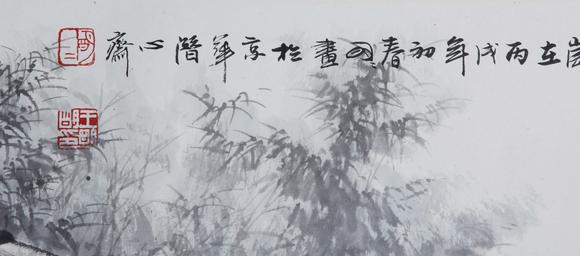 歲在丙戌年初春畫於京華潛心齋